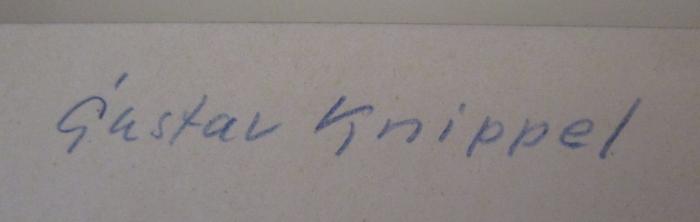 Gustav Knippel